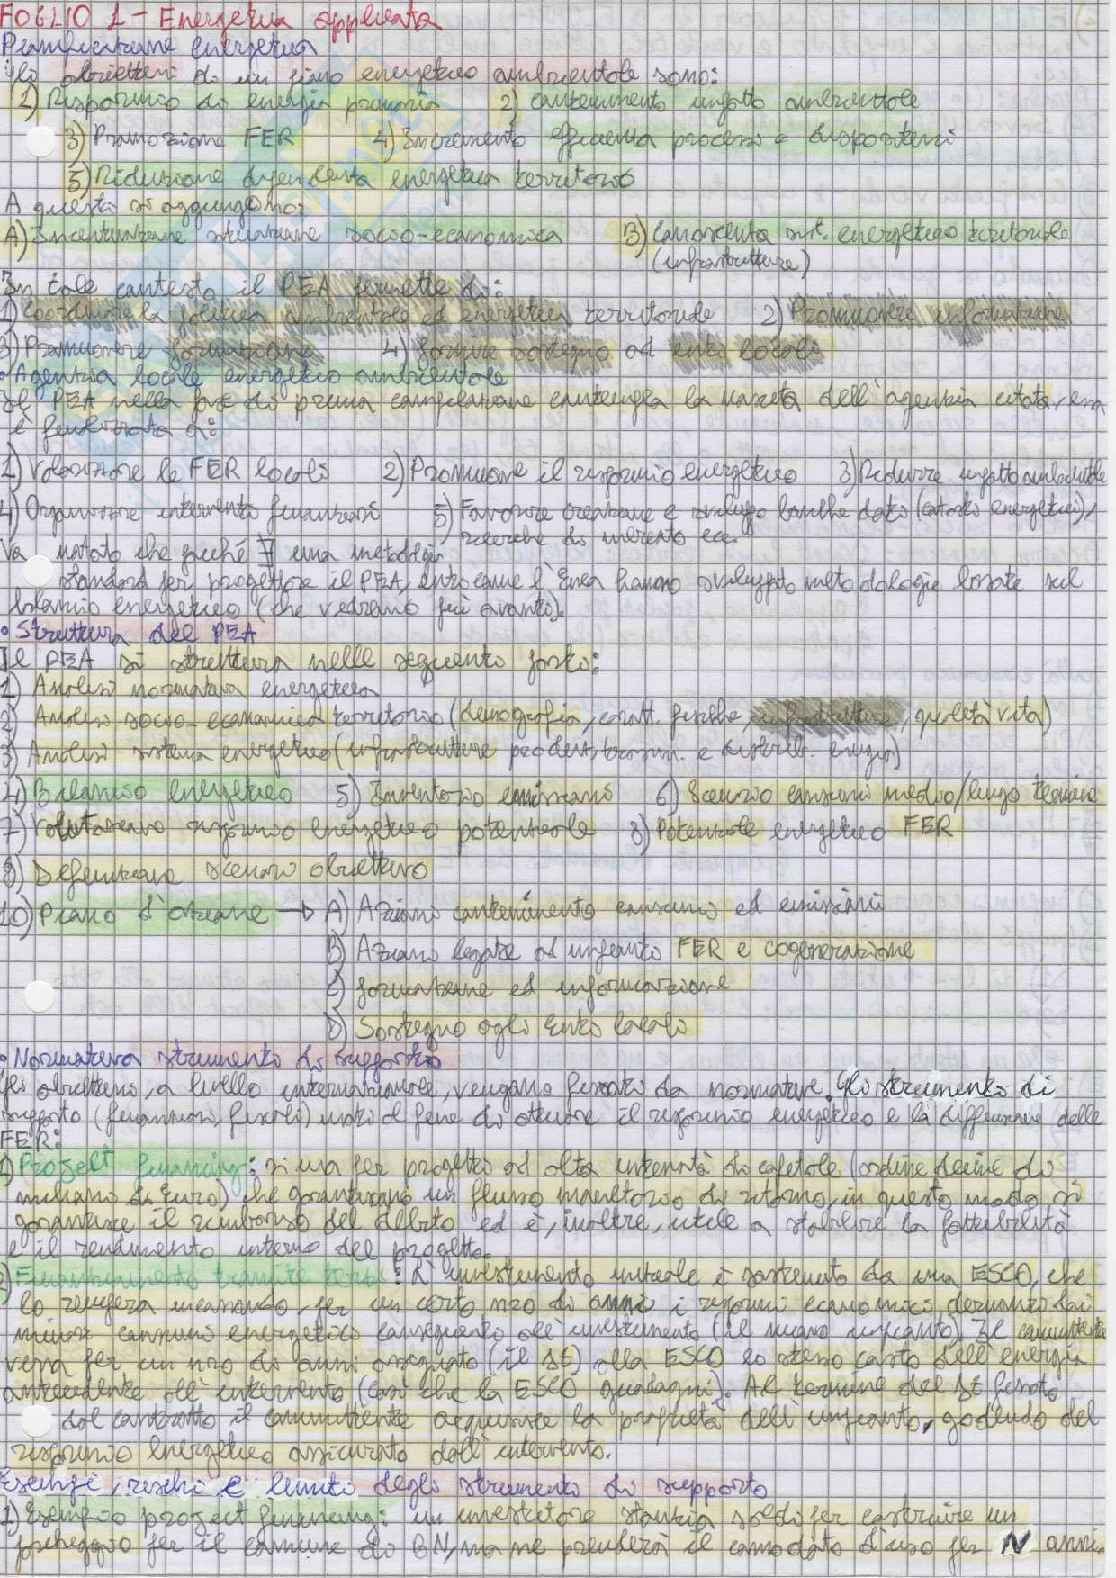 FOGLIO 1 - Energetica applicata
Pianificazione energetica
Gli obiettivi di un piano energetico ambientale sono:
1) Risparmio di energia primaria 2) contenimento impatto ambientale
3) Promozione FER 4) Incremento efficienza processi e dispositivi
5) Riduzione dipendenza energetica territorio
A questi si aggiungono:
A) Incentivazione situazione socio-economica B) Conoscenza sist. energetico territoriale
(infrastrutture)
In tale contesto il PEA permette di:
1) Coordinare la politica ambientale ed energetica territoriale 2) Promuovere
3) Promuovere formazione 4) fornire sostegno ad enti locali
• Agenzia locale energetico ambientale
Il PEA nella fase di prima compilazione contempla la nascita dell'agenzia citata, essa
è finalizzata a:
1) Valorizzare le FER locali 2) Promuove il risparmio energetico 3) Ridurre impatto ambientale
4) Organizzare interventi finanziari 5) Favorire creazione e sviluppo banche dati (catasti energetici),
ricerche di mercato ecc.
Va notato che poiché ∄ una metodologia
standard per progettare il PEA, enti come l'Enea hanno sviluppato metodologie basate sul
bilancio energetico (che vedremo più avanti).
• Struttura del PEA
Il PEA si struttura nelle seguenti fasi:
1) Analisi normativa energetica
2) Analisi socio-economica territorio (demografia, caratt. fisiche, infrastrutture, qualità vita)
3) Analisi sistema energetico (infrastrutture produz, trasm. e distrib. energia)
4) Bilancio energetico 5) Inventario emissioni 6) Scenario consumi medio/lungo termine
7) Valutazione risparmio energetico potenziale 8) Potenziale energetico FER
9) Definizione scenario obiettivo
10) Piano d'azione → A) Azioni contenimento consumi ed emissioni
B) Azioni legate ad impianti FER e cogenerazione
C) formazione ed informazione
D) Sostegno agli Enti locali
• Normativa strumenti di supporto
Gli obiettivi, a livello internazionale, vengono fissati da normative. Gli strumenti di
supporto (finanziari, fiscali) mirano al fine di ottenere il risparmio energetico e la diffusione delle
FER:
1) Project financing: si usa per progetti ad alta intensità di capitale (ordine decine di
milioni di Euro), che garantiscono un flusso monetario di ritorno, in questo modo si
garantisce il rimborso del debito ed è, inoltre, utile a stabilire la fattibilità
e il rendimento interno del progetto.
2) Finanziamento tramite terzi: L'investimento iniziale è sostenuto da una ESCO, che
lo recupera incassando, per un certo nro di anni i risparmi economici derivanti dai
minori consumi energetici conseguenti all'investimento (il nuovo impianto). Il committente
versa per un nro di anni assegnato (il Δt) alla ESCO lo stesso costo dell'energia
antecedente all'intervento (così che la ESCO guadagni). Al termine del Δt fissato
dal contratto il committente acquisisce la proprietà dell'impianto, godendo del
risparmio energetico assicurato dall'intervento.
Esempi, rischi e limiti degli strumenti di supporto
1) Esempio project financing: un investitore stanzia soldi per costruire un
parcheggio per il comune di BN, ma ne prenderà il comodato d'uso per N anni.